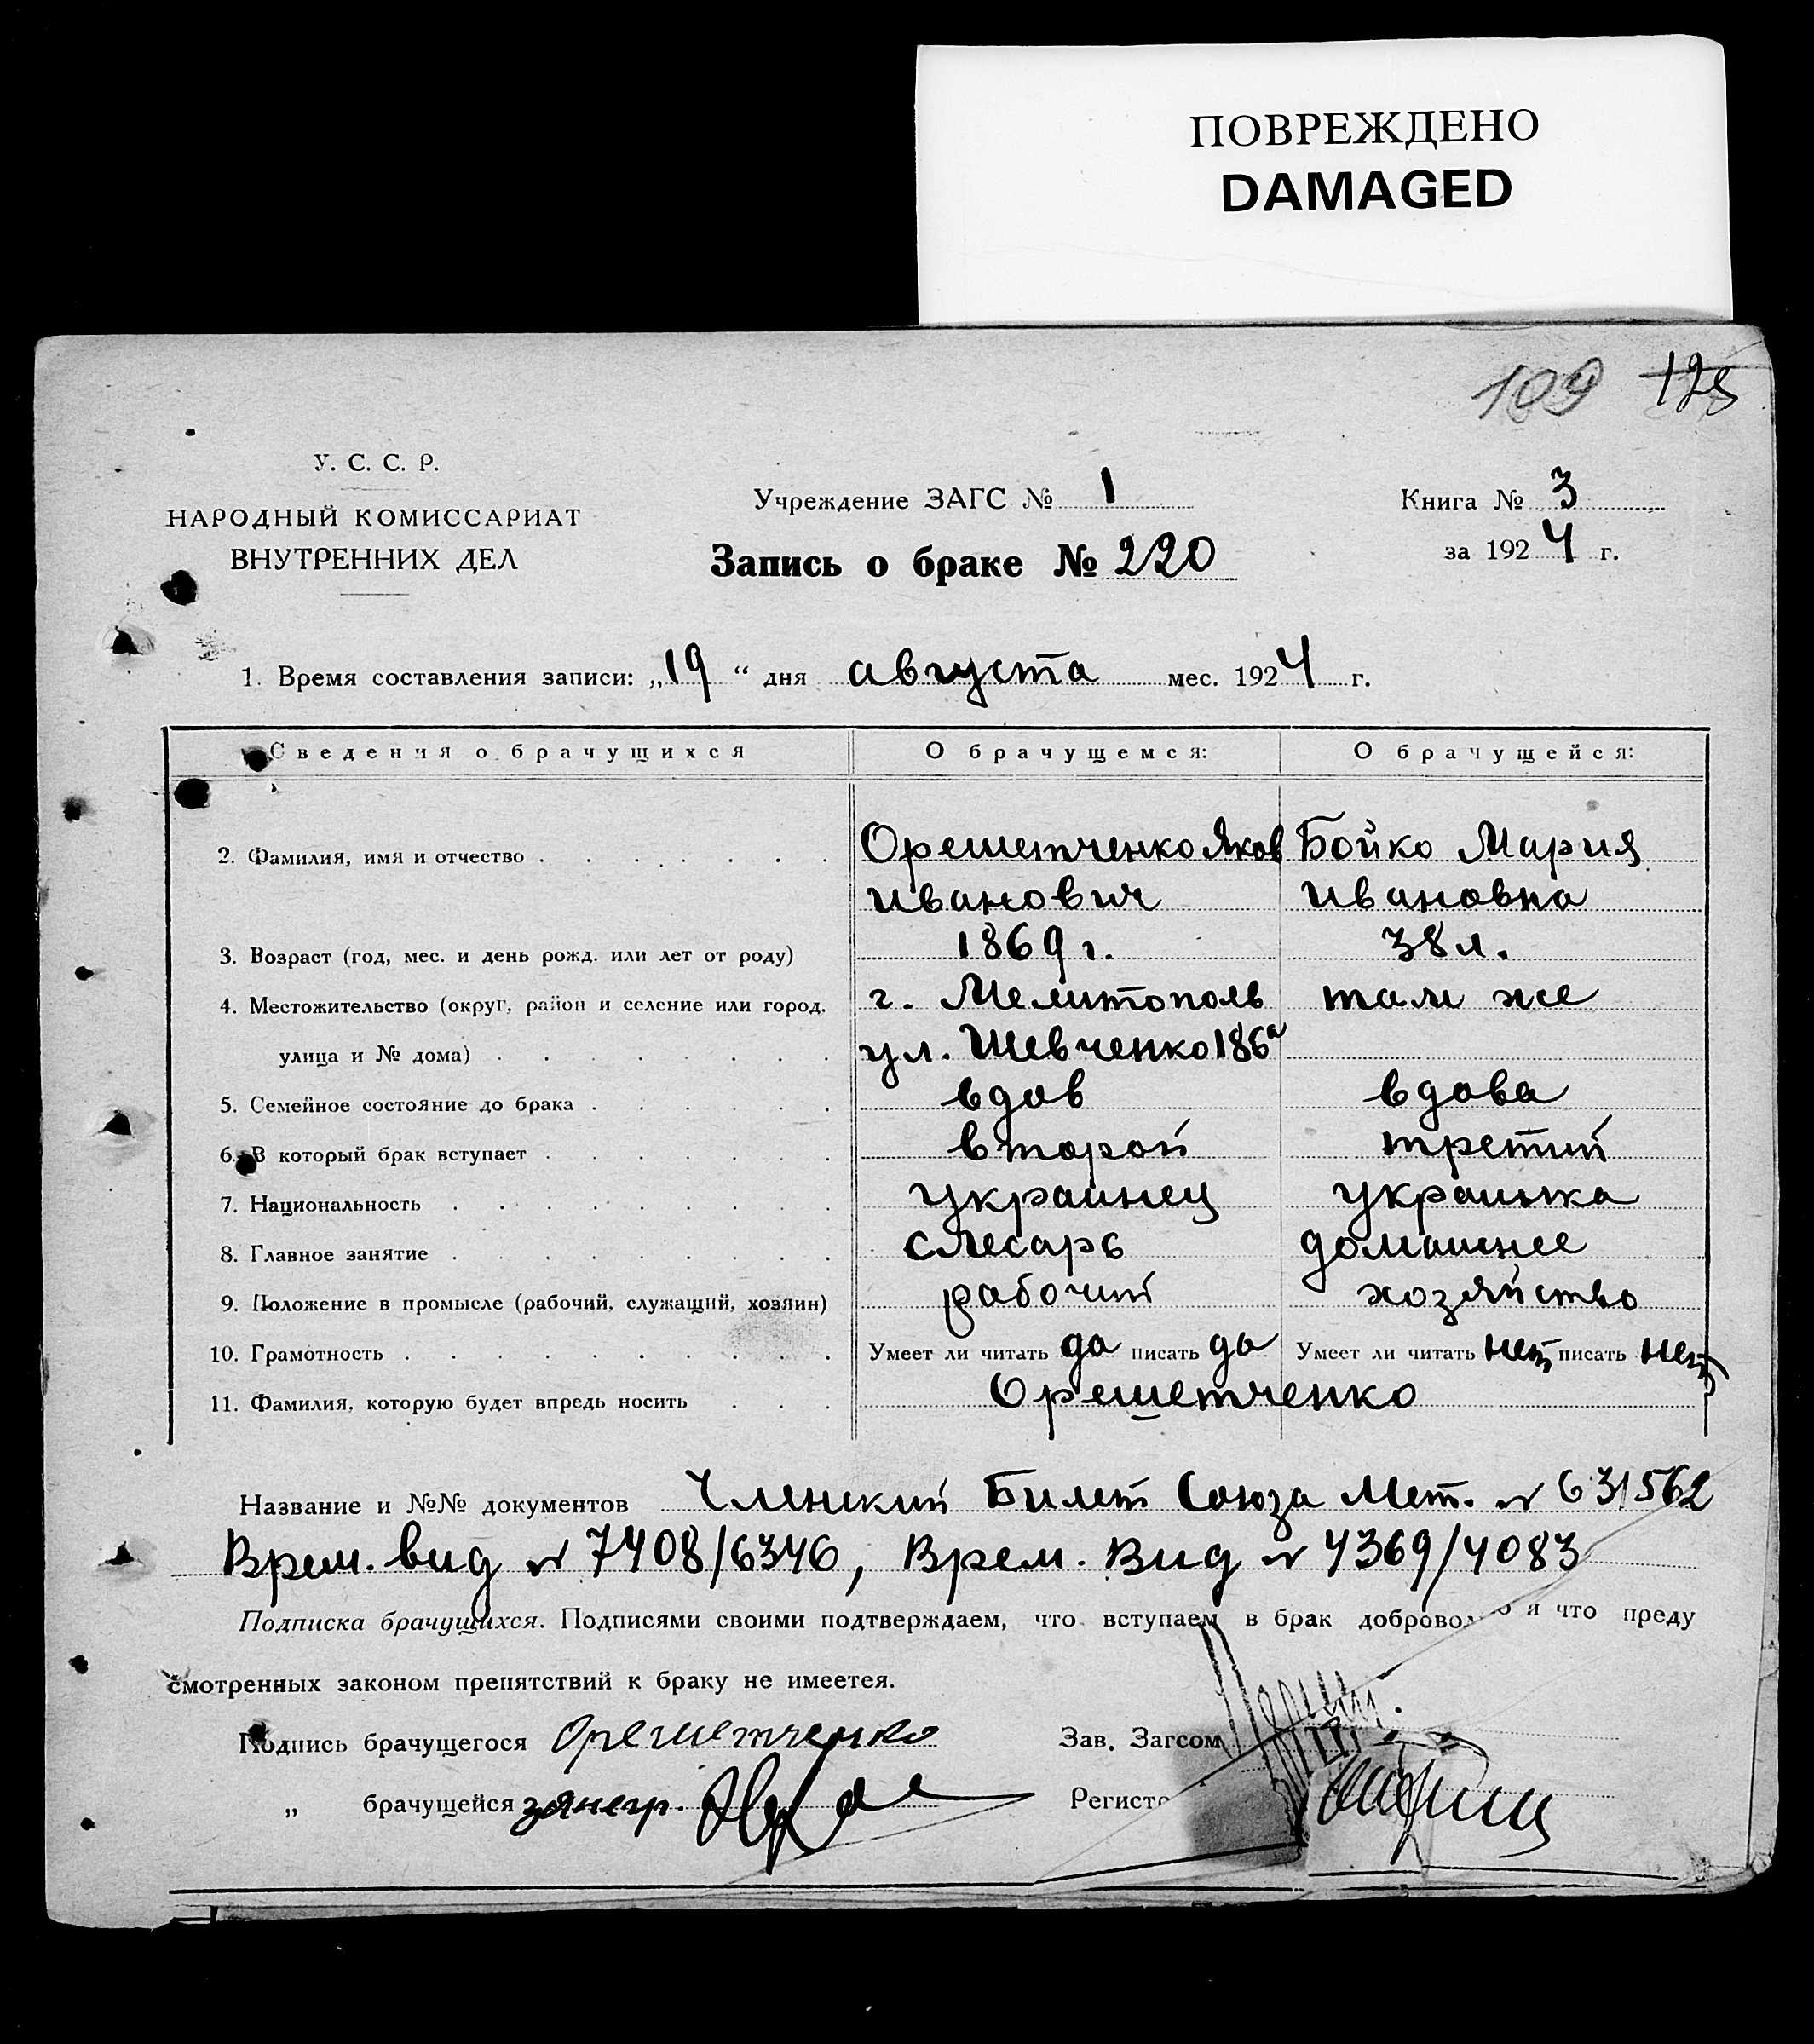 ПОВРЕЖДЕНО
DAMAGED
109 128
У. С. С. Р.
НАРОДНЫЙ КОМИССАРИАТ
ВНУТРЕННИХ ДЕЛ
Учреждение ЗАГС № 1
Запись о браке № 220
Книга № 3
за 1924 г.
1. Время составления записи: „19“ дня августа мес. 1924 г.
Сведения о брачущихся О брачущемся: О брачущейся:
2. Фамилия, имя и отчество Орешетченко Яков Бойко Мария
Иванович Ивановна
3. Возраст (год, мес. и день рожд. или лет от роду) 1869 г. 38 л.
4. Местожительство (округ, район и селение или город, г. Мелитополь там же
улица и № дома) ул. Шевченко 186а
5. Семейное состояние до брака вдов вдова
6. В который брак вступает второй третий
7. Национальность украинец украинка
8. Главное занятие слесарь домашнее
9. Положение в промысле (рабочий, служащий, хозяин) рабочий хозяйство
10. Грамотность Умеет ли читать да писать да Умеет ли читать нет писать нет
11. Фамилия, которую будет впредь носить Орешетченко
Название и №№ документов Членский Билет Союза Мет. № 631562
Врем. вид № 7408/6346, Врем. Вид № 4369/4083
Подписка брачущихся. Подписями своими подтверждаем, что вступаем в брак и что преду
смотренных законом препятствий к браку не имеется.
Подпись брачущегося Орешетченко Зав. Загсом
„ брачущейся за негр.